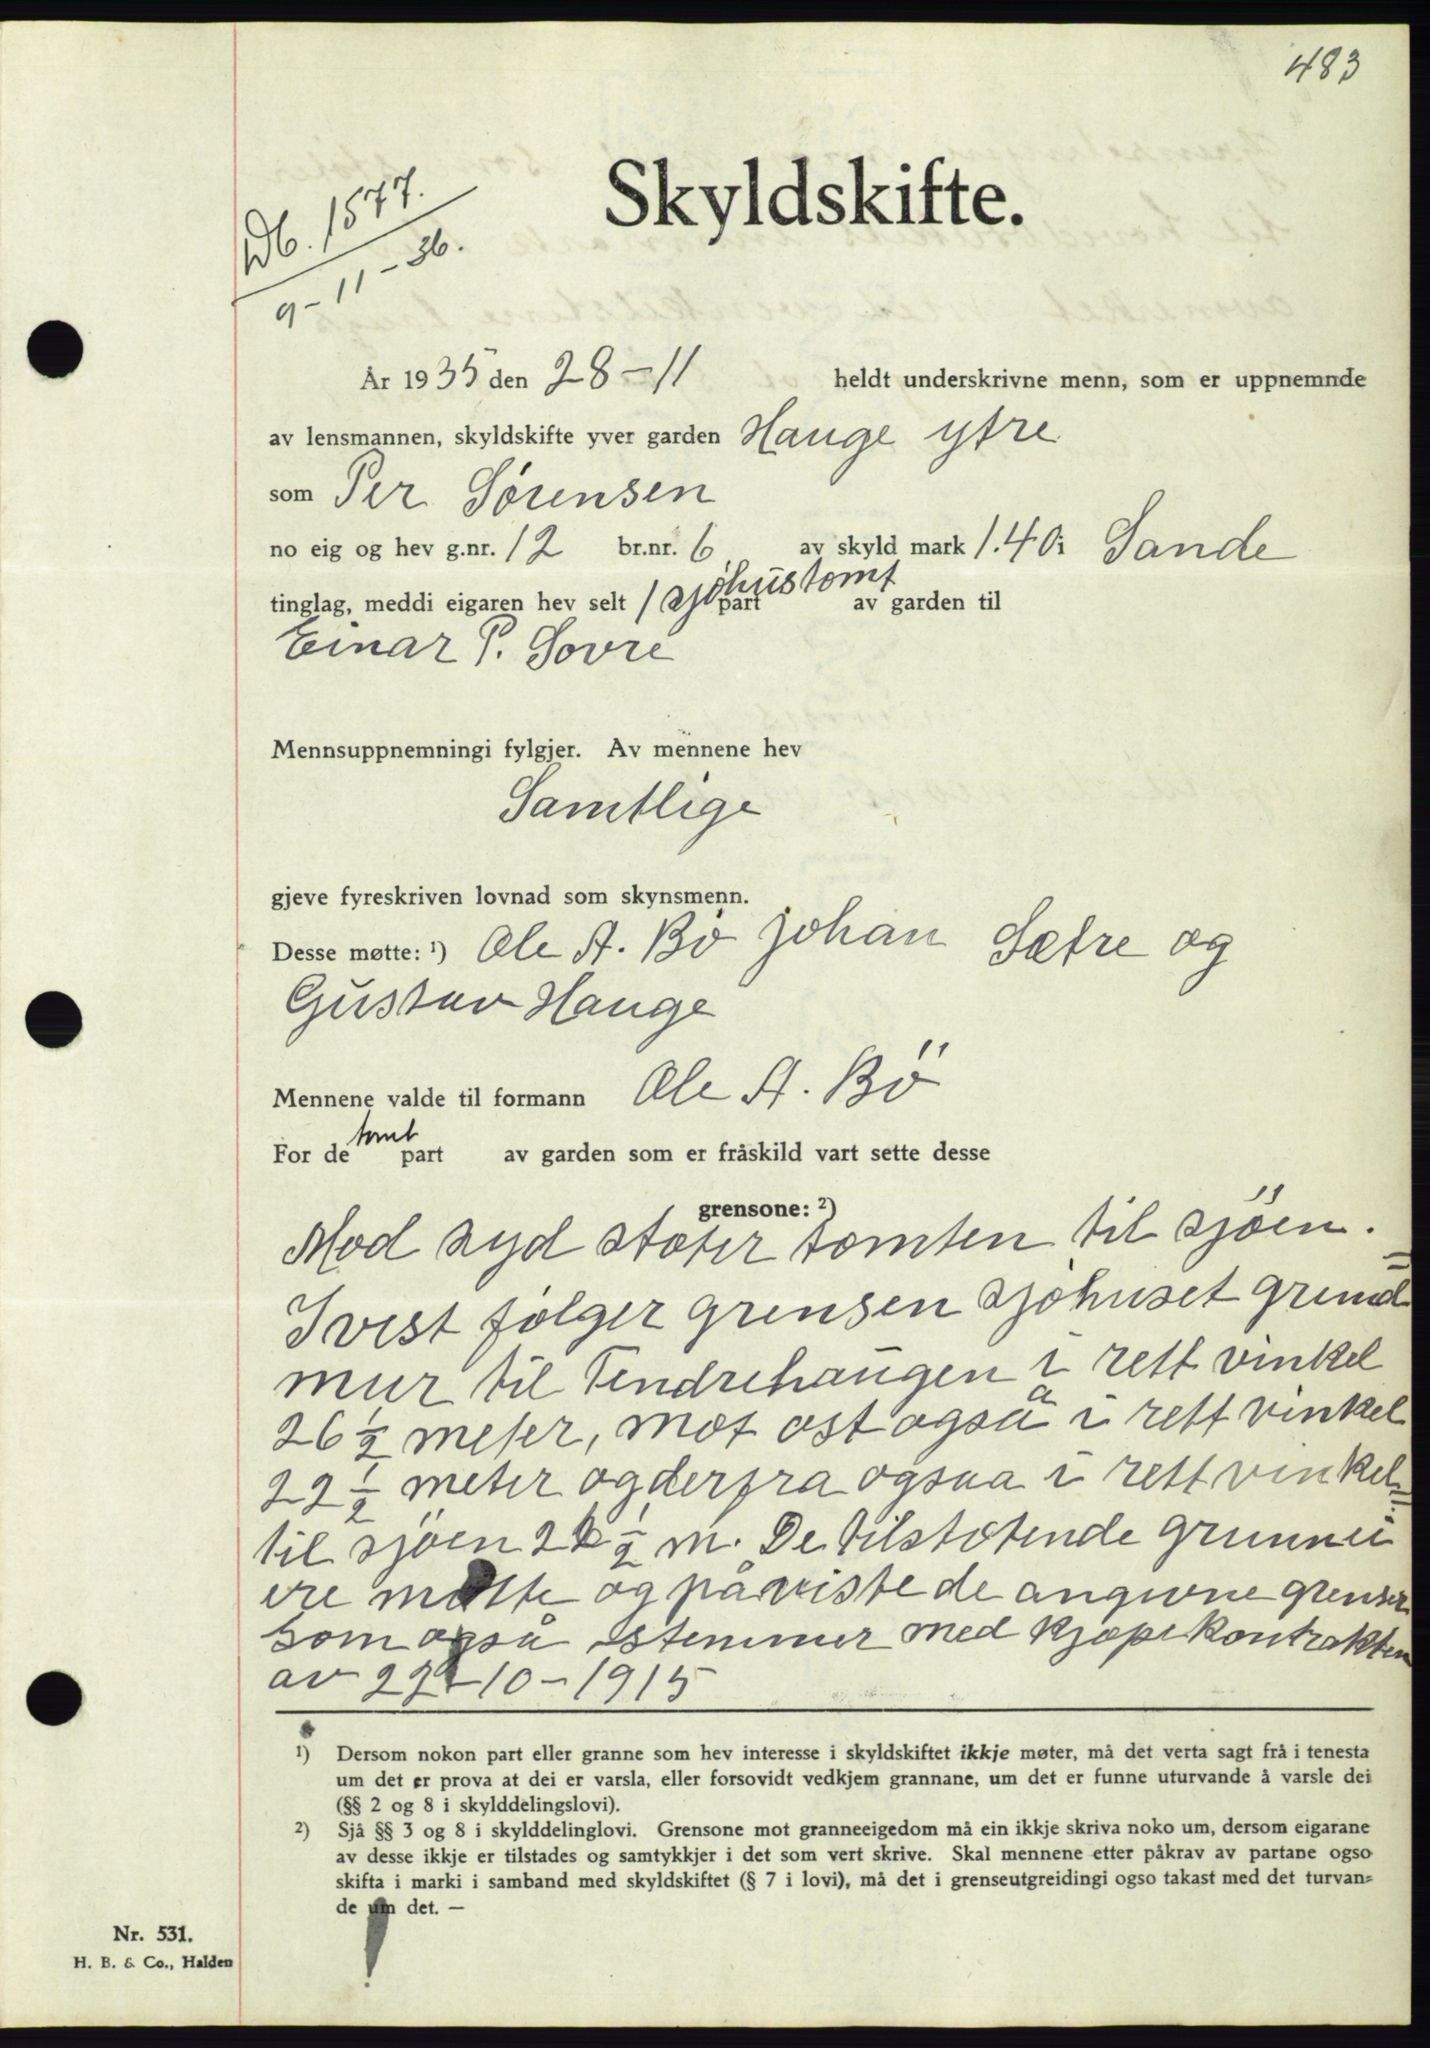 483
Skyldskifte.
Db. 1577.
9-11-36.
År 1935 den 28-11 heldt underskrivne menn, som er uppnemnde
av lensmannen, skyldskifte yver garden Hauge ytre
som Per Sørensen
no eig og hev g.nr. 12 br.nr. 6 av skyld mark 1.40 i Sande
tinglag, meddi eigaren hev selt 1 sjøhustomt part av garden til
Einar P. Sovre
Mennsuppnemningi fylgjer. Av mennene hev
Samtlige
gjeve fyreskriven lovnad som skynsmenn.
Desse møtte: ¹) Ole A. Bö Johan Sætre og
Gustav Hauge
Mennene valde til formann Ole A. Bö
For de tomt part av garden som er fråskild vart sette desse
grensone: ²)
Mod syd støter tomten til sjöen.
I vest følger grensen sjøhuset grund=
mur til Tendrehaugen i rett vinkel
26 ½ meter, mot ost også i rett vinkel
22 ½ meter og derfra ogsaa i rett vinkel
til sjøen ½ m. De tilstøtende grunnei=
ere møtte og påviste de angivne grenser
som også stemmer med kjøpekontrakten
av 22-10-1915
¹) Dersom nokon part eller granne som hev interesse i skyldskiftet ikkje møter, må det verta sagt frå i tenesta
um det er prova at dei er varsla, eller forsovidt vedkjem grannane, um det er funne uturvande å varsle dei
(§§ 2 og 8 i skylddelingslovi).
²) Sjå §§ 3 og 8 i skylddelinglovi. Grensone mot granneeigedom må ein ikkje skriva noko um, dersom eigarane
av desse ikkje er tilstades og samtykkjer i det som vert skrive. Skal mennene etter påkrav av partane ogso
skifta i marki i samband med skyldskiftet (§ 7 i lovi), må det i grenseutgreidingi ogso takast med det turvan=
de um det. —
Nr. 531.
H. B. & Co., Halden